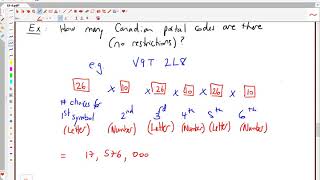 Ex: How many Canadian postal codes are there
(no restrictions)?
eg V9T 2L8
26 x 10 x 26 x 10 x 26 x 10
# choices for 2nd 3rd 4th 5th 6th
1st symbol
(Letter) (Number) (Letter) (Number) (Letter) (Number)
= 17, 576, 000